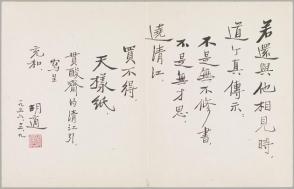 若還與他相見時，
道个真傳示：
不是無不修書，
不是無才思，
遶清江，
買不得，
天樣紙．
貫酸齋的清江引，
寫呈
充和
胡適
一九五六，三，九